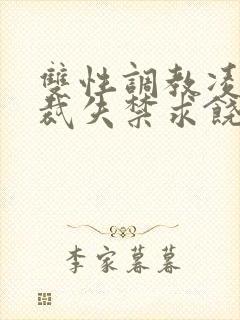 雙性調教凌
裁失禁求饒
李家暮暮